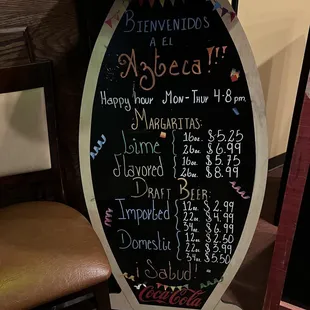 Bienvenidos
a el
Azteca!!!
Happy hour Mon-Thur 4-8 pm
Margaritas:
Lime 16oz. $5.25
26oz. $6.99
Flavored 16oz. $5.75
26oz. $8.99
Draft Beer:
Imported 12oz. $2.99
22oz. $4.99
34oz. $6.99
Domestic 12oz. $2.50
22oz. $3.99
34oz. $5.50
¡Salud!
Coca-Cola